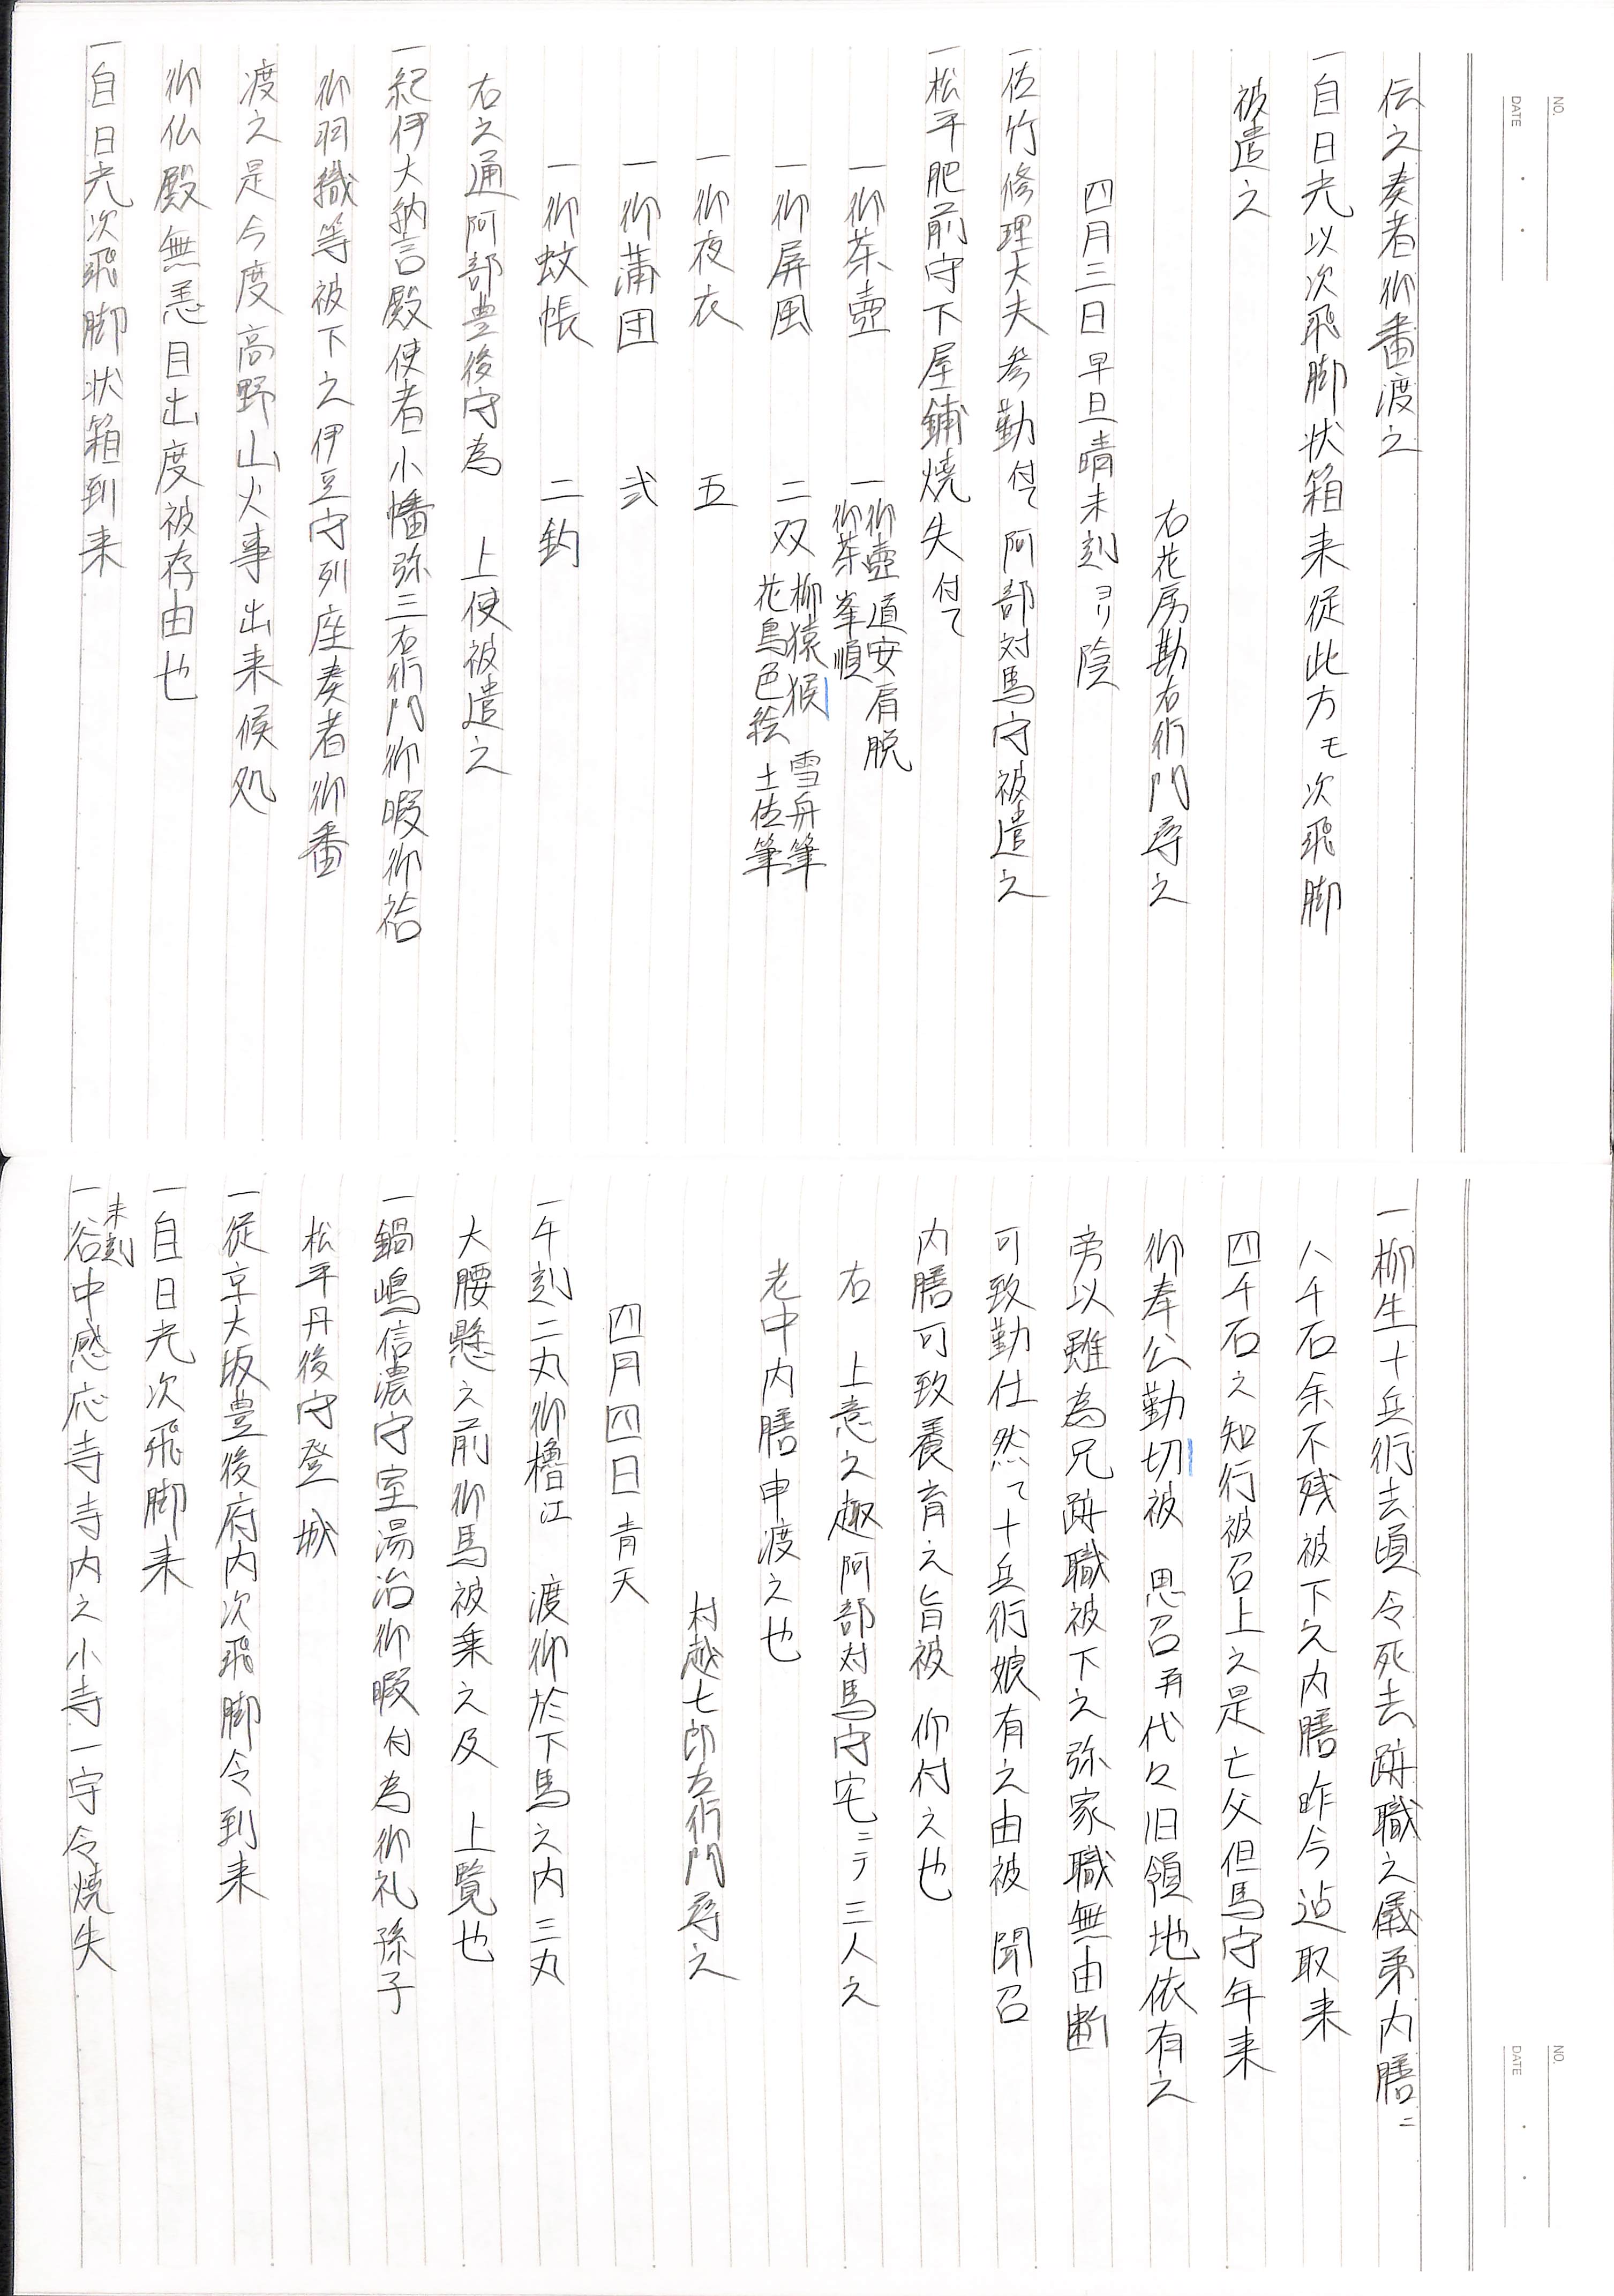 NO.
DATE
伝之奏者御番渡之
一自日光以次飛脚状箱来従此方モ次飛脚
被遣之
右花房勘右衛門尋之
四月三日早旦晴未刻ヨリ陰
一佐竹修理大夫参勤付て阿部対馬守被遣之
一松平肥前守下屋鋪焼失付て
一御茶壺 一御壺道安肩脱
御茶峯順
一御屏風 二双 柳猿猴 雪舟筆
花鳥色絵 土佐筆
一御夜衣 五
一御蒲団 弐
一御蚊帳 二釣
右之通阿部豊後守為 上使被遣之
一紀伊大納言殿使者小幡弥三右衛門御暇御袷
御羽織等被下之伊豆守列座奏者御番
渡之是今度高野山火事出来候処
御仏殿無恙目出度被存由也
一自日光次飛脚状箱到来
NO.
DATE
一柳生十兵衛去頃令死去跡職之儀弟内膳ニ
八千石余不残被下之内膳昨今迠取来
四千石之知行被召上之是亡父但馬守年来
御奉公勤切被 思召再代々旧領地依有之
旁以雖為兄跡職被下之弥家職無由断
可致勤仕然て十兵衛娘有之由被 聞召
内膳可致養育之旨被 仰付之也
右 上意之趣阿部対馬守宅ニテ三人之
老中内膳申渡之也
村越七郎左衛門尋之
四月四日青天
一午刻二丸御櫓江 渡御於下馬之内三丸
大腰懸之前御馬被乗之及 上覧也
一鍋嶋信濃守室湯治御暇付為御礼孫子
松平丹後守登 城
一従京大坂豊後府内次飛脚令到来
一自日光次飛脚来
一未刻谷中感応寺寺内之小寺一宇令焼失